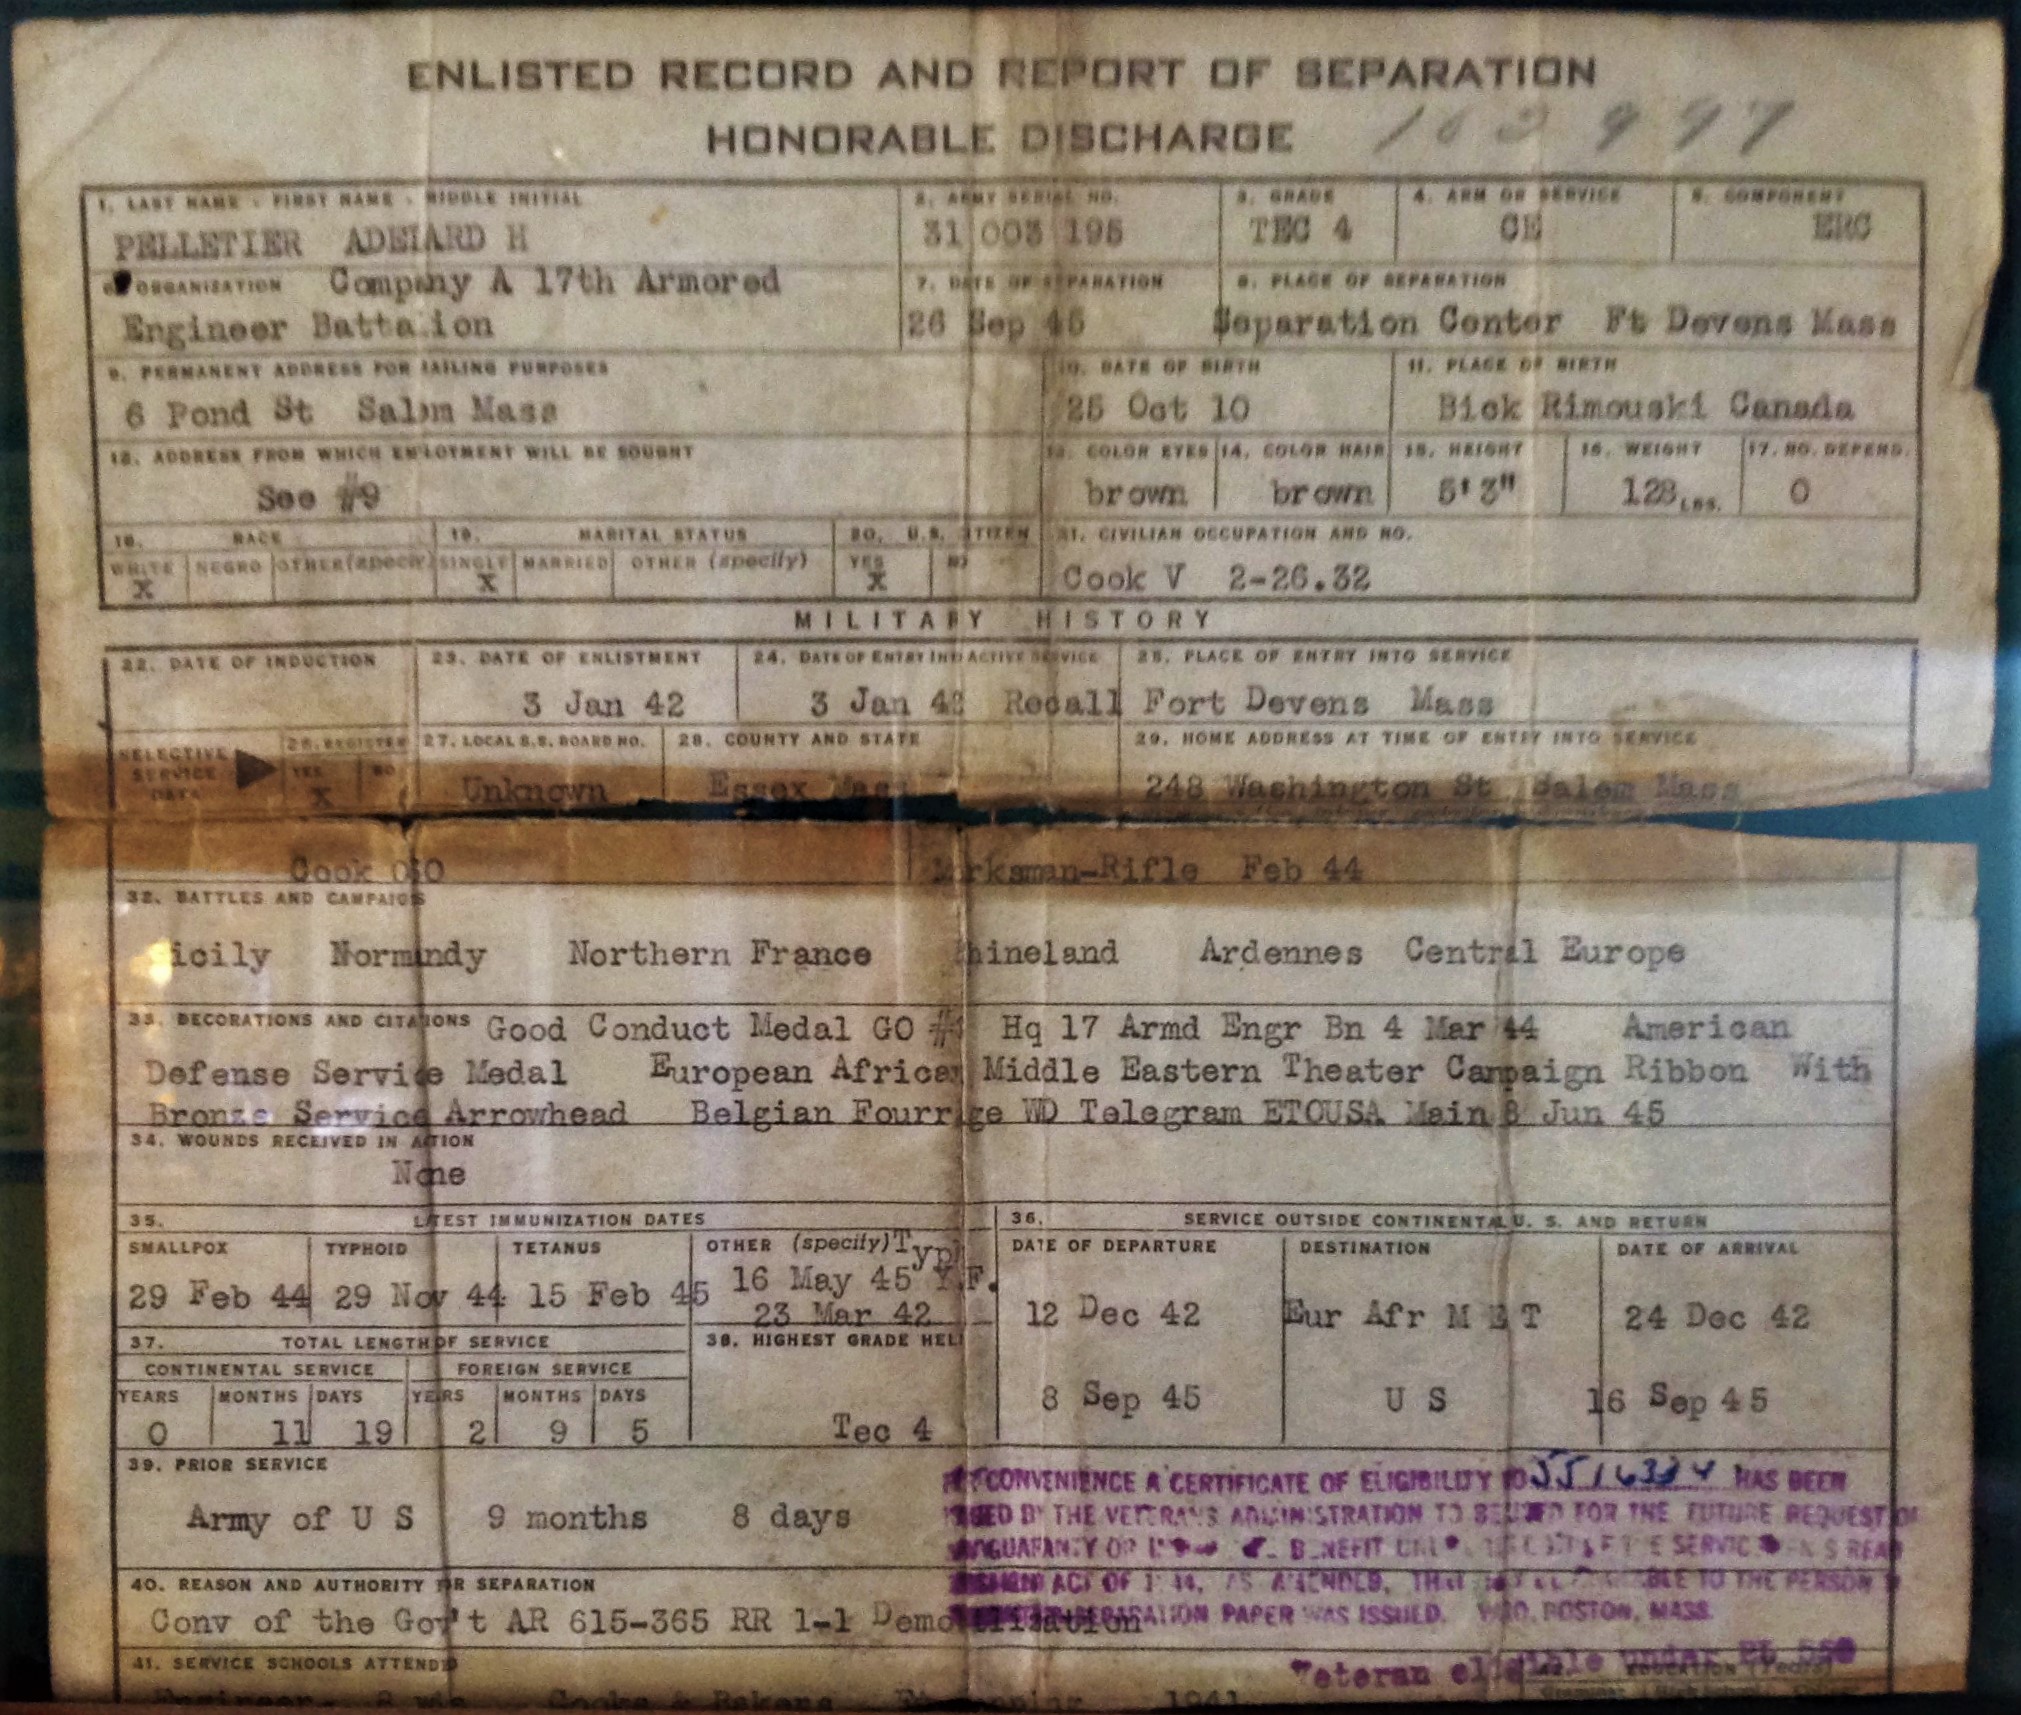 ENLISTED RECORD AND REPORT OF SEPARATION
HONORABLE DISCHARGE
1. LAST NAME - FIRST NAME - MIDDLE INITIAL 2. ARMY SERIAL NO. 3. GRADE 4. ARM OR SERVICE 5. COMPONENT
PELLETIER ADEIARD H 31 003 195 TEC 4 CE ERC
ORGANIZATION Company A 17th Armored 7. DATE OF SEPARATION 8. PLACE OF SEPARATION
Engineer Battalion 26 Sep 45 Separation Center Ft Devens Mass
9. PERMANENT ADDRESS FOR MAILING PURPOSES 10. DATE OF BIRTH 11. PLACE OF BIRTH
6 Pond St Salem Mass 25 Oct 10 Bick Rimouski Canada
12. ADDRESS FROM WHICH EMPLOYMENT WILL BE SOUGHT 13. COLOR EYES 14. COLOR HAIR 15. HEIGHT 16. WEIGHT 17. NO. DEPEND.
See #9 brown brown 5'3" 128 LBS. 0
18. RACE 19. MARITAL STATUS 20. U.S. CITIZEN 21. CIVILIAN OCCUPATION AND NO.
WHITE NEGRO OTHER (specify) SINGLE MARRIED OTHER (specify) YES NO
X X X Cook V 2-26.32
MILITARY HISTORY
22. DATE OF INDUCTION 23. DATE OF ENLISTMENT 24. DATE OF ENTRY INTO ACTIVE SERVICE 25. PLACE OF ENTRY INTO SERVICE
3 Jan 42 3 Jan 42 Recall Fort Devens Mass
SELECTIVE SERVICE DATA 26. REGISTER 27. LOCAL S.S. BOARD NO. 28. COUNTY AND STATE 29. HOME ADDRESS AT TIME OF ENTRY INTO SERVICE
YES NO
X Unknown Essex Mass 248 Washington St Salem Mass
Cook 060 Marksman-Rifle Feb 44
32. BATTLES AND CAMPAIGNS
icily Normandy Northern France hineland Ardennes Central Europe
33. DECORATIONS AND CITATIONS Good Conduct Medal GO Hq 17 Armd Engr Bn 4 Mar 44 American
Defense Service Medal European African Middle Eastern Theater Campaign Ribbon With
Bronze Service Arrowhead Belgian Fourrage WD Telegram ETOUSA Main 8 Jun 45
34. WOUNDS RECEIVED IN ACTION
None
35. LATEST IMMUNIZATION DATES 36. SERVICE OUTSIDE CONTINENTAL U. S. AND RETURN
SMALLPOX TYPHOID TETANUS OTHER (specify) Typh DATE OF DEPARTURE DESTINATION DATE OF ARRIVAL
29 Feb 44 29 Nov 44 15 Feb 45 16 May 45 Y.F.
23 Mar 42 12 Dec 42 Eur Afr M E T 24 Dec 42
37. TOTAL LENGTH OF SERVICE 38. HIGHEST GRADE HELD
CONTINENTAL SERVICE FOREIGN SERVICE
YEARS MONTHS DAYS YEARS MONTHS DAYS 8 Sep 45 U S 16 Sep 45
0 11 19 2 9 5 Tec 4
39. PRIOR SERVICE
Army of U S 9 months 8 days
CONVENIENCE A CERTIFICATE OF ELIGIBILITY HAS BEEN
BY THE VETERANS ADMINISTRATION TO BE USED FOR THE FUTURE REQUEST OF
BENEFIT
ACT OF AS AMENDED, TO THE PERSON
SEPARATION PAPER WAS ISSUED. BOSTON, MASS.
40. REASON AND AUTHORITY FOR SEPARATION
Conv of the Gov't AR 615-365 RR 1-1 Demobilization
41. SERVICE SCHOOLS ATTENDED Veteran eligible under PL 550
EDUCATION (Years)
Engineer- 8 wks Cooks & Bakers 1941